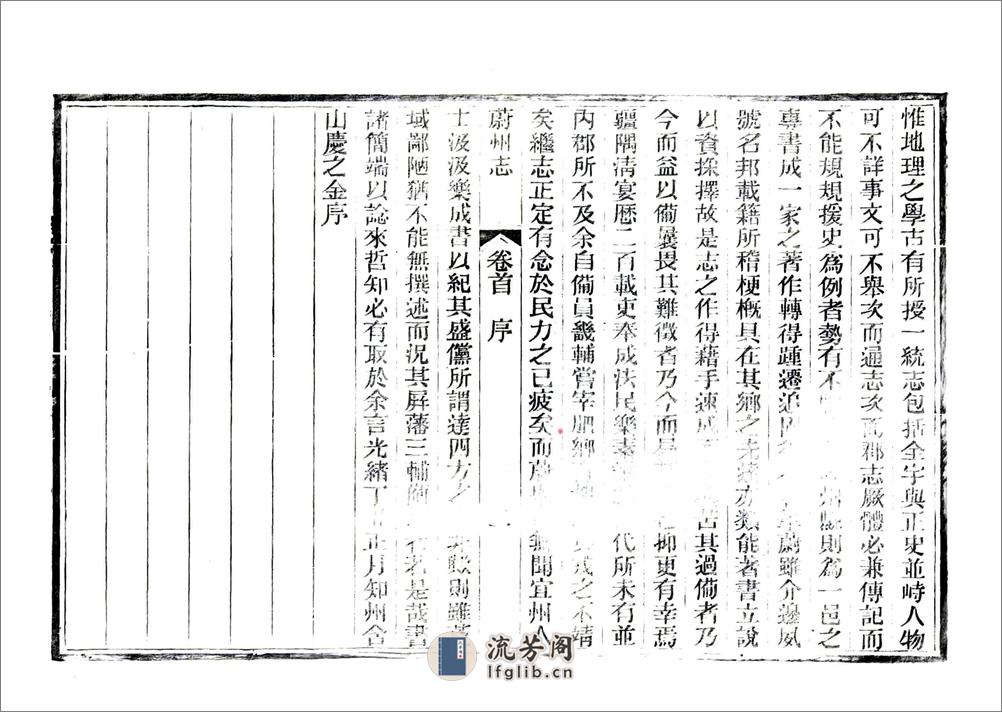 惟地理之學古有所授一統志包括全宇與正史並峙人物
可不詳事文可不舉次而通志次而郡志厥體必兼傳記而
不能規規援史為例者勢有不 則為一邑之
專書成一家之著作轉得踵遷追 蔚雖介邊威
號名邦載籍所稽梗概具在其鄉之先 類能著書立說
以資採擇故是志之作得藉手速成 其過備者乃
今而益以備曩畏其難徵者乃今而 抑更有幸焉
疆隅淸宴歷二百載吏奉成法民樂 代所未有並
內郡所不及余自備員畿輔嘗宰肥鄉 之不靖
矣繼志正定有念於民力之已疲矣而蔚 無聞宜州人
蔚州志 卷首 序
士汲汲樂成書以紀其盛儻所謂達四方之 則雖
域鄙陋猶不能無撰述而況其屏藩三輔 者是哉書
諸簡端以諗來哲知必有取於余言光緒丁 正月知州會
山慶之金序
流芳阁
lfglib.cn